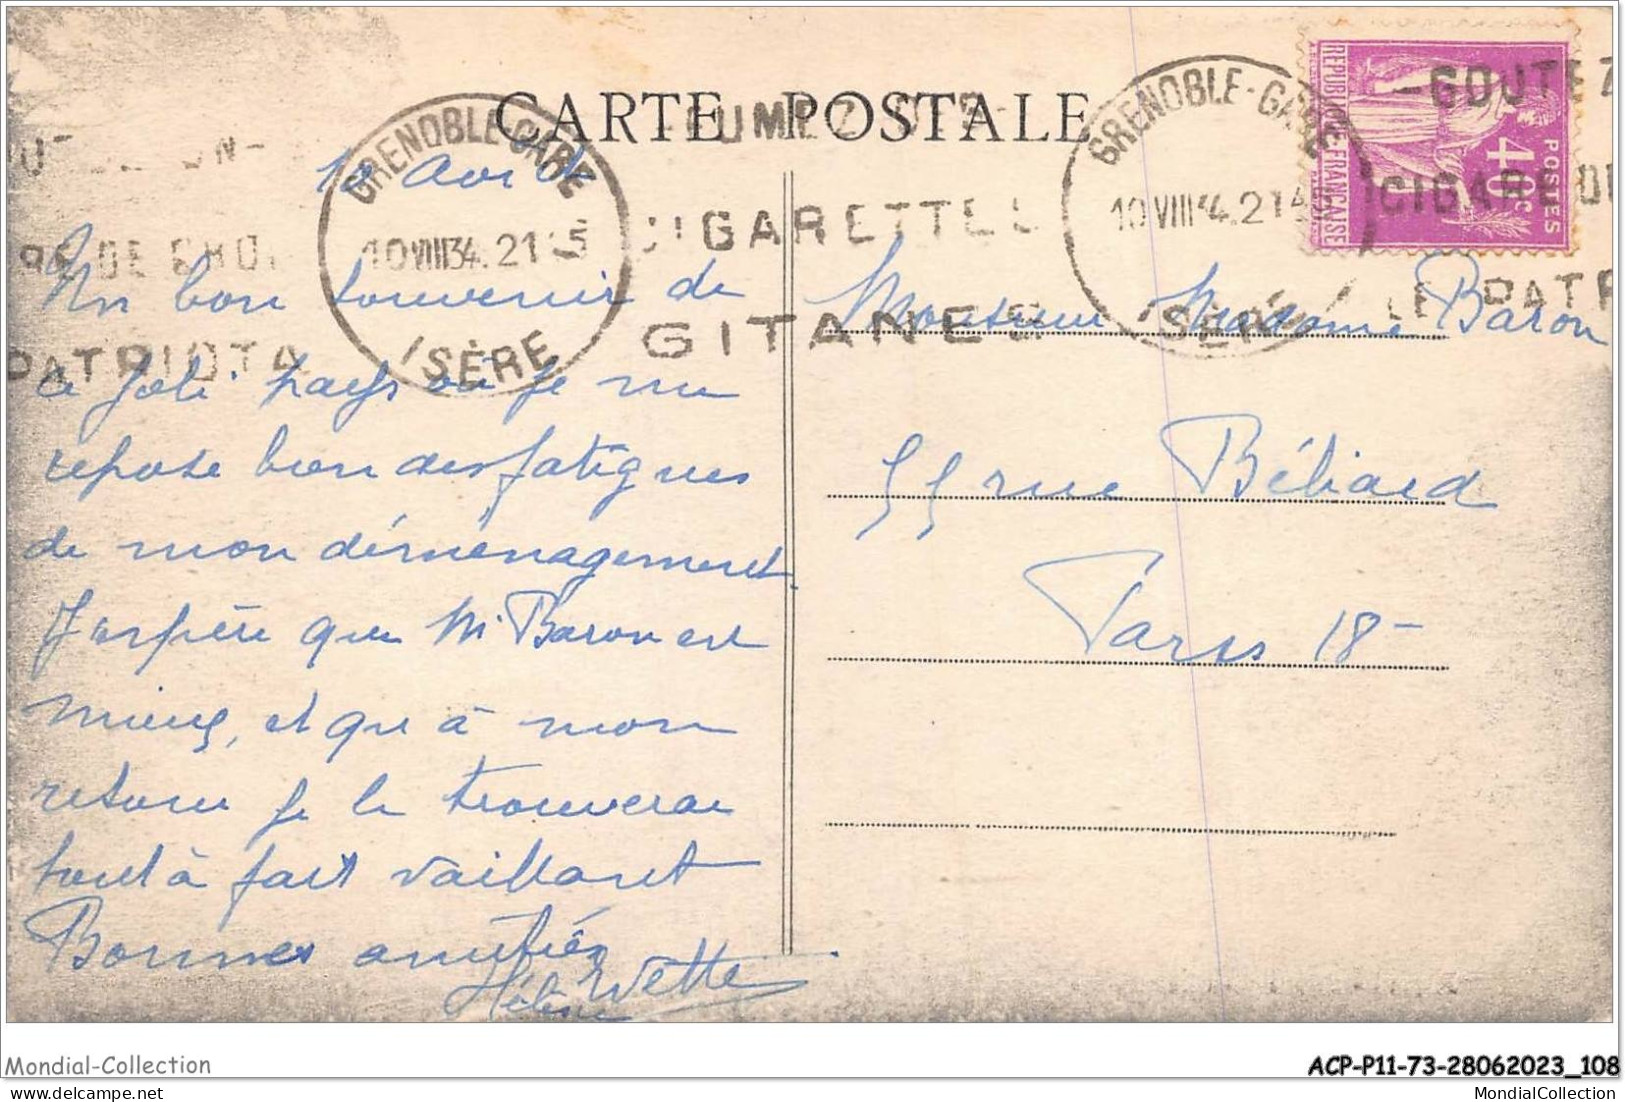 CARTE POSTALE
GRENOBLE-GARE
10 VIII 34. 21
ISÈRE
CIGARETTES
GITANES
GRENOBLE-GARE
10 VIII 34. 21
ISÈRE
-GOUTEZ
CIGARE DE
LE PATR
REPUBLIQUE FRANÇAISE
POSTES
40c
PATRIOTA
Un bon souvenir de
ce joli pays où je me
repose bien des fatigues
de mon déménagement
J'espère que Mr Baron est
mieux, et qu'à mon
retour je le trouverai
tout à fait vaillant
Bonnes amitiés
Hélène
Monsieur Madame Baron
55 rue Béliard
Paris 18-
Mondial-Collection
ACP-P11-73-28062023_108
MondialCollection